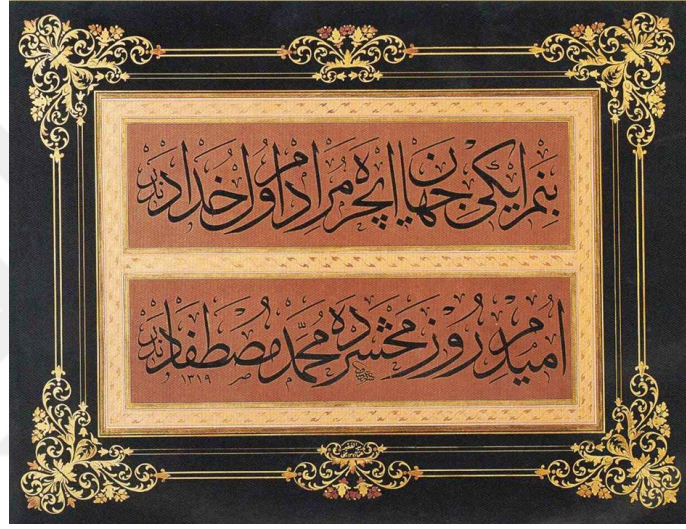 بنم ایکی جهان ایچره مرادم اول خدادندر
امیدم روز محشرده محمد مصطفادندر
١٣١٩